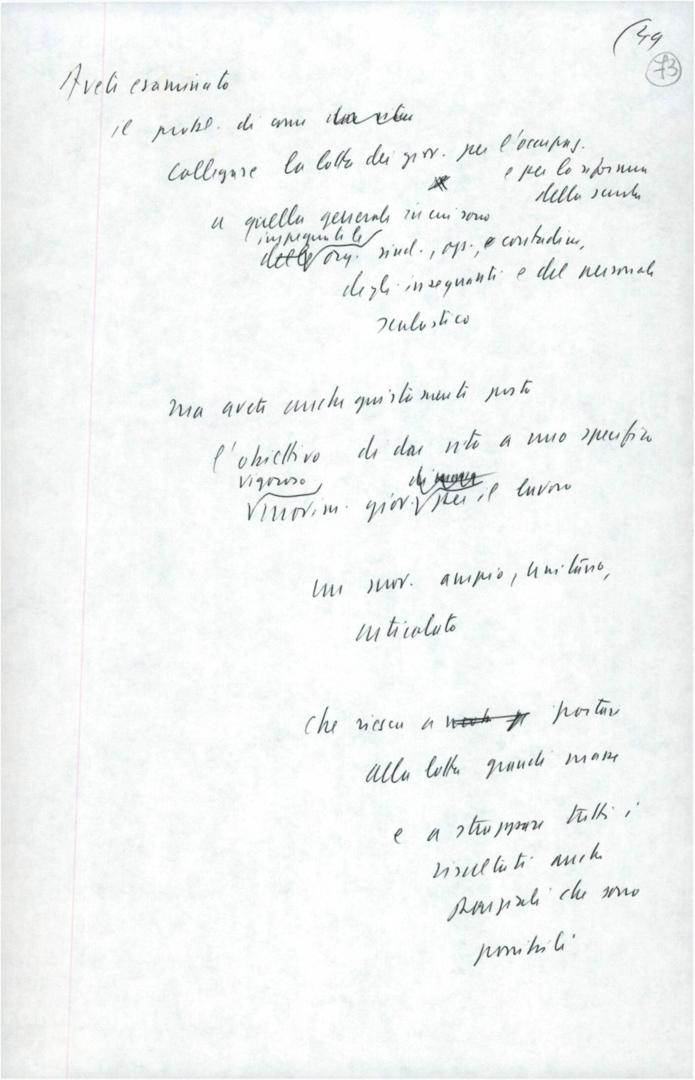 (49
73
Avete esaminato
il probl. di come dar vita
collegare la lotta dei giov. per l'occupaz.
e per la riforma
della scuola
a quella generale in cui sono
impegnate le
delle org. sind., op., e contadine,
degli insegnanti e del personale
scolastico
ma avete anche giustamente posto
l'obiettivo di dar vita a uno specifico
vigoroso
movim. giov. per il lavoro
un mov. ampio, unitario,
articolato
che riesca a portare
alla lotta grandi masse
e a strappare tutti i
risultati anche
parziali che sono
possibili